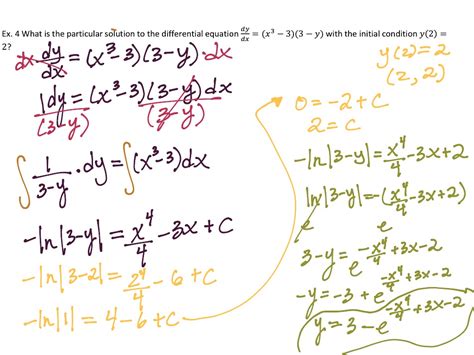 Ex. 4 What is the particular solution to the differential equation dy/dx = (x³ − 3)(3 − y) with the initial condition y(2) =
2?
dx · dy/dx = (x³-3)(3-y) · dx
1dy/(3-y) = (x³-3)(3-y)dx/(3-y)
∫ 1/(3-y) · dy = ∫(x³-3)dx
-ln|3-y| = x⁴/4 - 3x + C
-ln|3-2| = 2⁴/4 - 6 + C
-ln|1| = 4-6+C
y(2)=2
(2,2)
0 = -2+C
2 = C
-ln|3-y| = x⁴/4 - 3x+2
ln|3-y| = -(x⁴/4 - 3x+2)
e e
3-y = e^(-x⁴/4+3x-2)
-y = -3 + e^(-x⁴/4+3x-2)
y = 3 - e^(-x⁴/4+3x-2)